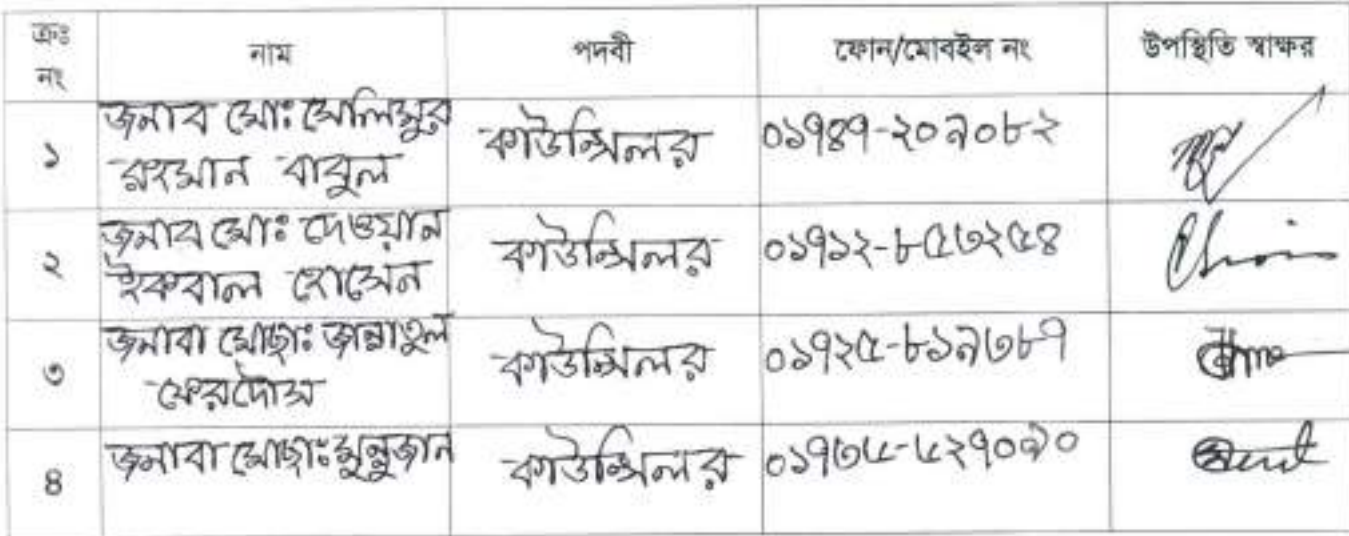 ক্রঃ নং নাম পদবী ফোন/মোবইল নং উপস্থিতি স্বাক্ষর
১ জনাব মোঃ সেলিমুর রহমান বাবুল কাউন্সিলর ০১৭৪৭-২০৯০৮২
২ জনাব মোঃ দেওয়ান ইকবাল হোসেন কাউন্সিলর ০১৭১২-৮৫৩২৫৪
৩ জনাবা মোছাঃ জান্নাতুল ফেরদৌস কাউন্সিলর ০১৭২৫-৮১৯৩৮৭
৪ জনাবা মোছাঃ মুন্নুজান কাউন্সিলর